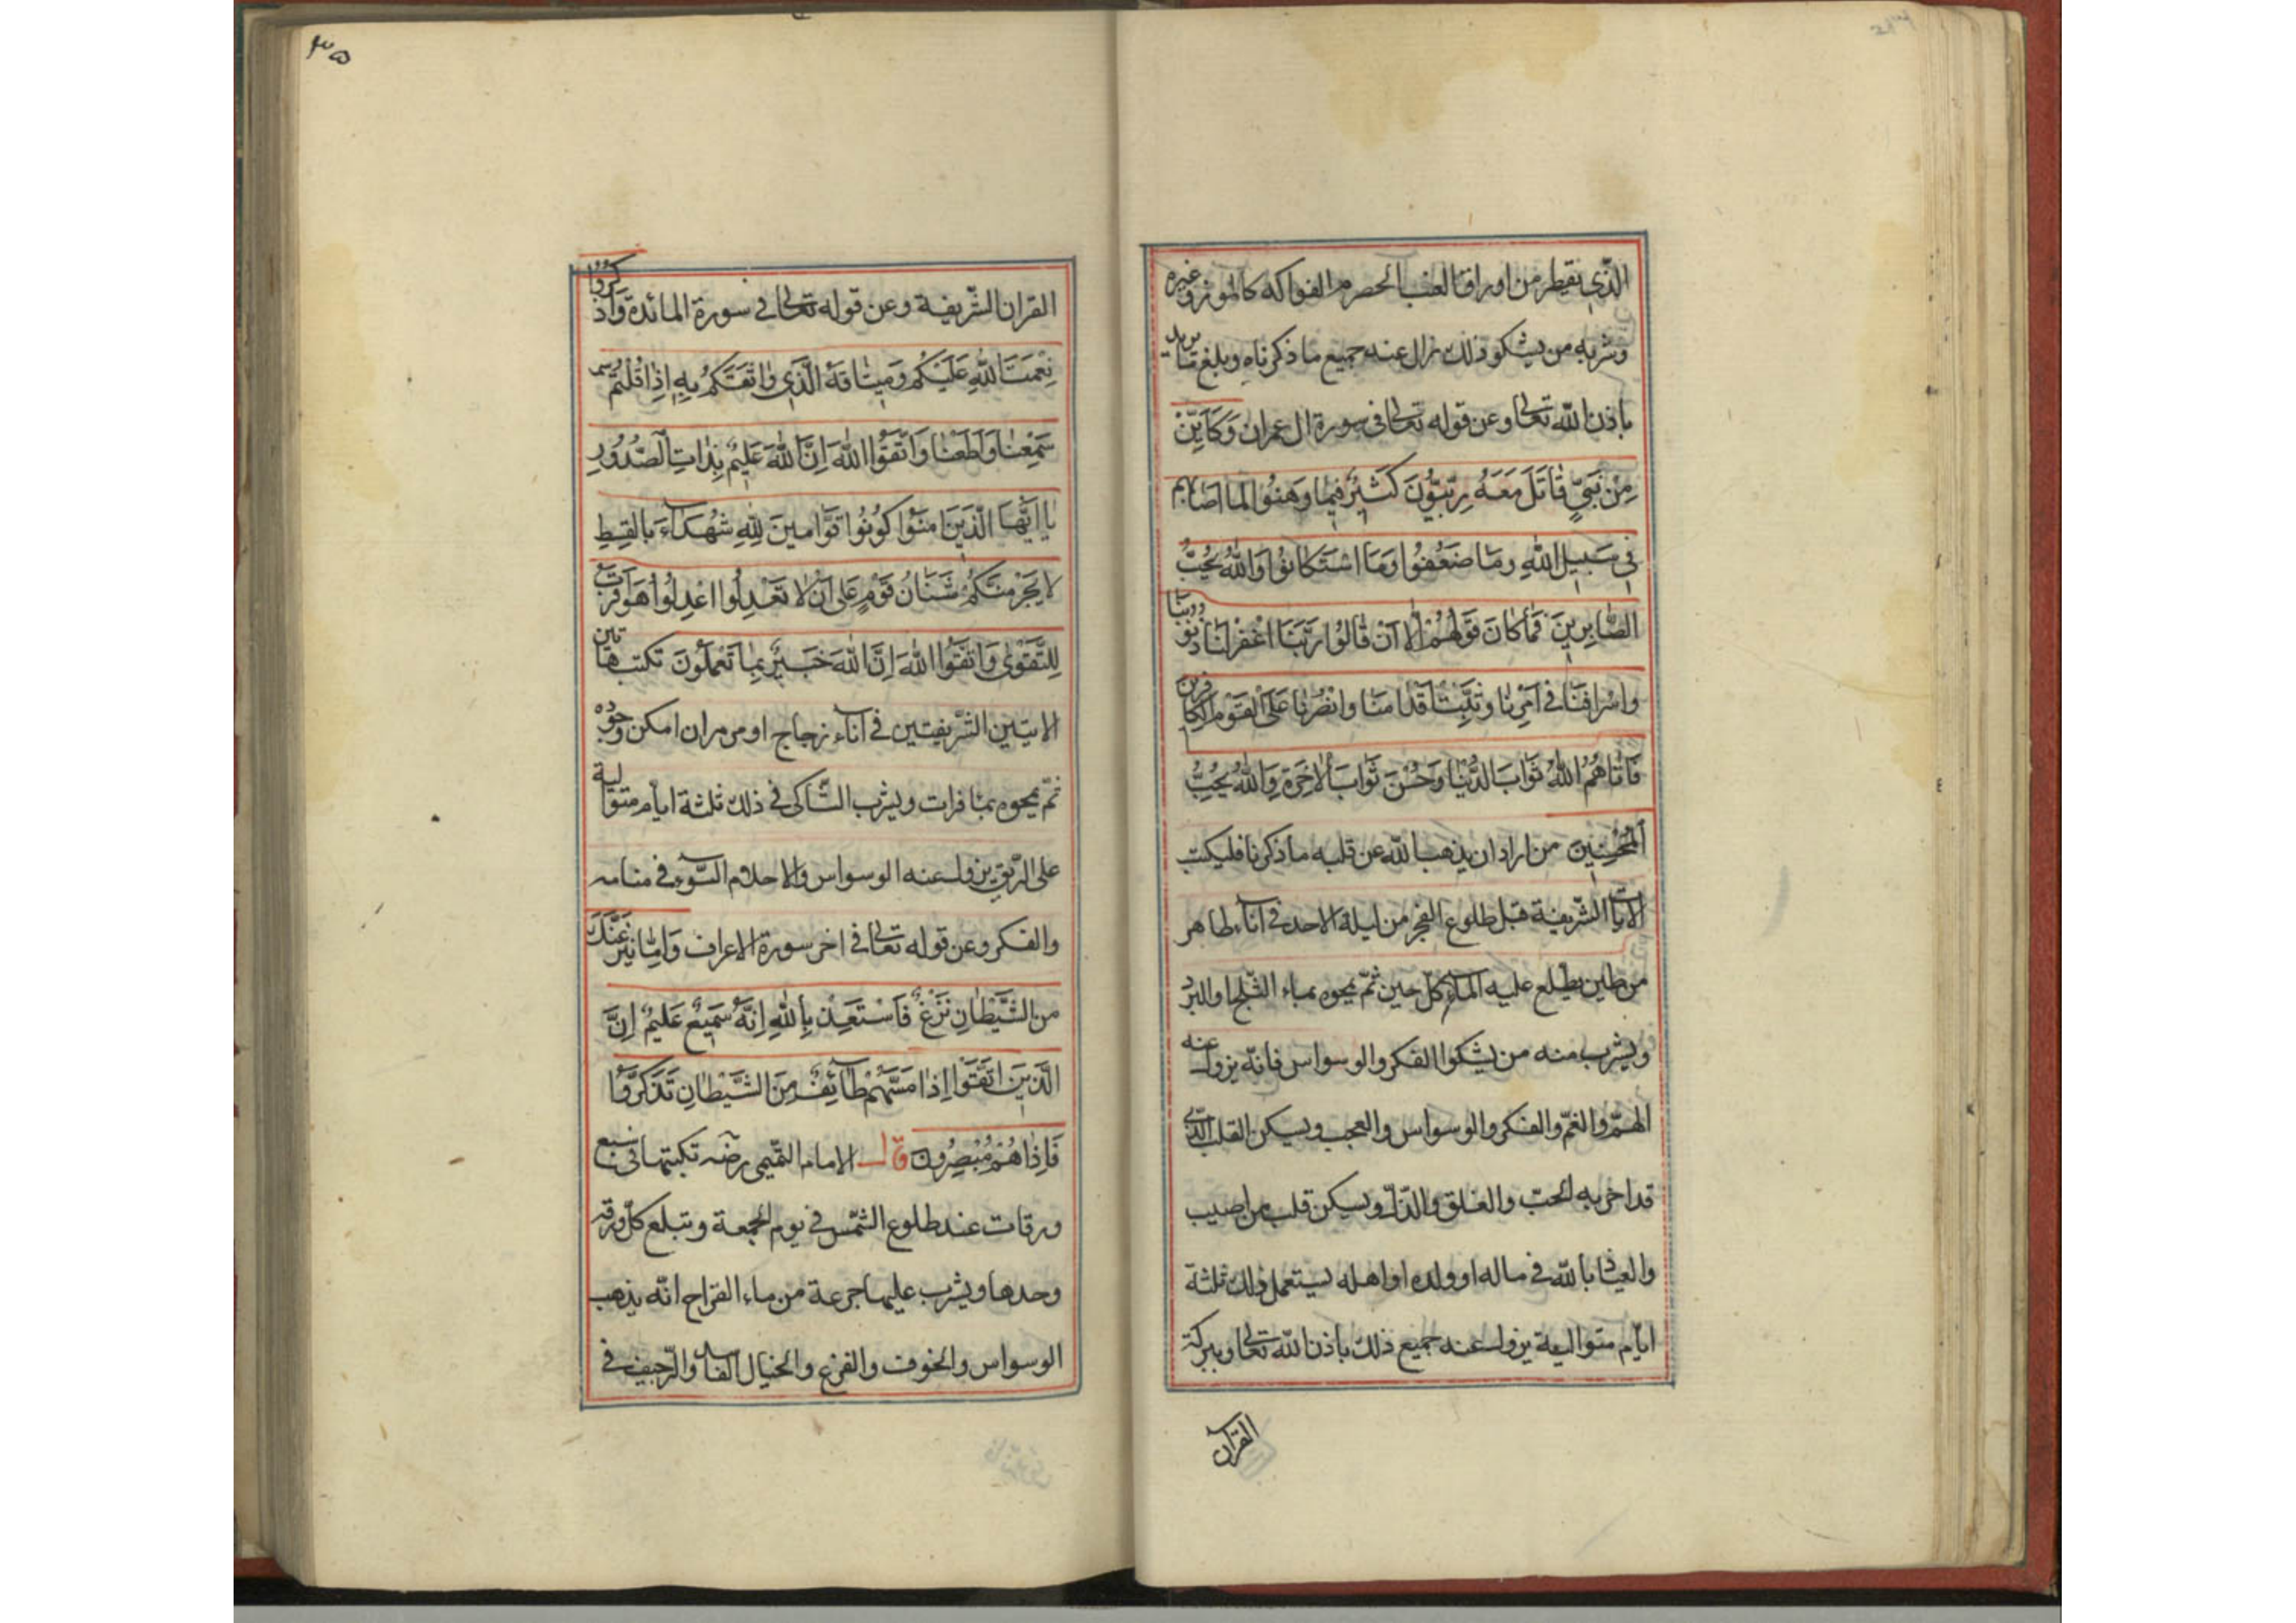 الذي يقطر من اوراق العنب الحصرم الفواكه كالموز وغيره
وشربه من يشكو ذلك زال عنه جميع ما ذكرناه وبلغ ما يريد
باذن الله تعالى وعن قوله تعالى في سورة ال عمران وَكَاَيِّنْ
مِنْ نَبِيٍّ قَاتَلَ مَعَهُ رِبِّيُّونَ كَثِيرٌ فَمَا وَهَنُوا لِمَا اَصَابَهم
فِي سَبِيلِ اللهِ وَمَا ضَعُفُوا وَمَا اسْتَكَانُوا وَاللهُ يُحِبُّ
الصَّابِرِينَ فَمَا كَانَ قَوْلَهُمْ اِلَّا اَنْ قَالُوا رَبَّنَا اغْفِرْ لَنَا ذُنُوبَنَا
وَاِسْرَافَنَا فِي اَمْرِنَا وَثَبِّتْ اَقْدَامَنَا وَانْصُرْنَا عَلَى الْقَوْمِ الْكَافِرِينَ
فَاٰتَاهُمُ اللهُ ثَوَابَ الدُّنْيَا وَحُسْنَ ثَوَابِ الْاٰخِرَةِ وَاللهُ يُحِبُّ
الْمُحْسِنِينَ من اراد ان يذهب الله عن قلبه ما ذكرنا فليكتب
الايات الشّريفة قبل طلوع الفجر من ليلة الاحد في اناء طاهر
من طين يطلع عليه الماء كلّ حين ثمّ يمحوه بماء الثلج او البرد
ويشرب منه من يشكوا الفكر والوسواس فانّه يزول عنه
الهمّ والغمّ والفكر والوسواس والعجب ويسكن القلب الّذي
قد اضرّ به الحبّ والغلق والذّلّ ويسكن قلب من اصيب
والعياذ بالله في ماله او ولده او اهله يستعمل ذلك ثلثة
ايّام متوالية يزول عنه جميع ذلك باذن الله تعالى وببركة
القرآن
٣٥
القران الشّريفة وعن قوله تعالى في سورة المائدة وَاذْكُرُوا
نِعْمَتَ اللهِ عَلَيْكُمْ وَمِيثَاقَهُ الَّذِي وَاثَقَكُمْ بِهِ اِذْ قُلْتُمْ
سَمِعْنَا وَاَطَعْنَا وَاتَّقُوا اللهَ اِنَّ اللهَ عَلِيمٌ بِذَاتِ الصُّدُورِ
يَا اَيُّهَا الَّذِينَ اٰمَنُوا كُونُوا قَوَّامِينَ لِلّٰهِ شُهَدَآءَ بِالْقِسْطِ
لَا يَجْرِمَنَّكُمْ شَنَاٰنُ قَوْمٍ عَلٰى اَنْ لَا تَعْدِلُوا اعْدِلُوا هُوَ اَقْرَبُ
لِلتَّقْوٰى وَاتَّقُوا اللهَ اِنَّ اللهَ خَبِيرٌ بِمَا تَعْمَلُونَ تكتب هاتين
الايتين الشّريفيتين في اناء زجاج او مرمر ان امكن وجوده
ثمّ يمحوه بماء فرات ويشرب الشّاكي في ذلك ثلثة ايّام متوالية
على الرّيق يزول عنه الوسواس والاحلام السّوء في منامه
والفكر وعن قوله تعالى في اخر سورة الاعراف وَاِمَّا يَنْزَغَنَّكَ
مِنَ الشَّيْطَانِ نَزْغٌ فَاسْتَعِذْ بِاللهِ اِنَّهُ سَمِيعٌ عَلِيمٌ اِنَّ
الَّذِينَ اتَّقَوْا اِذَا مَسَّهُمْ طَآئِفٌ مِنَ الشَّيْطَانِ تَذَكَّرُوا
فَاِذَا هُمْ مُبْصِرُونَ قال الامام التّميمي رضه تكبتها في سبع
ورقات عند طلوع الشّمس في يوم الجمعة وتبلع كلّ ورقة
وحدها ويشرب عليها جرعة من ماء القراح انّه يذهب
الوسواس والخوف والفزع والخيال الفاسد والرّجيف في